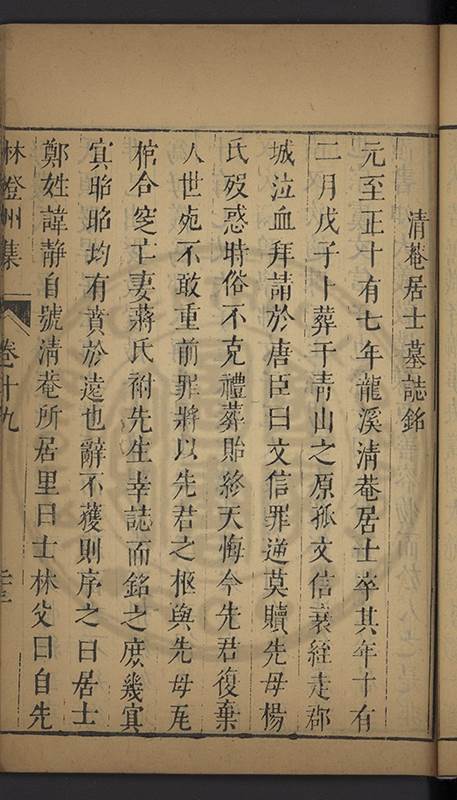 清菴居士墓誌銘
元至正十有七年龍溪清菴居士卒其年十有
二月戊子卜葬于青山之原孤文信衰絰走郡
城泣血拜請於唐臣曰文信罪逆莫贖先母楊
氏歿惑時俗不克禮葬貽終天悔今先君復棄
人世宛不敢重前罪將以先君之柩與先母瓦
棺合窆亡妻蔣氏祔先生幸誌而銘之庶幾冥
冥昭昭均有賁於遠也辭不獲則序之曰居士
鄭姓諱静自號清菴所居里曰士林父曰自先
林登州集
卷十九